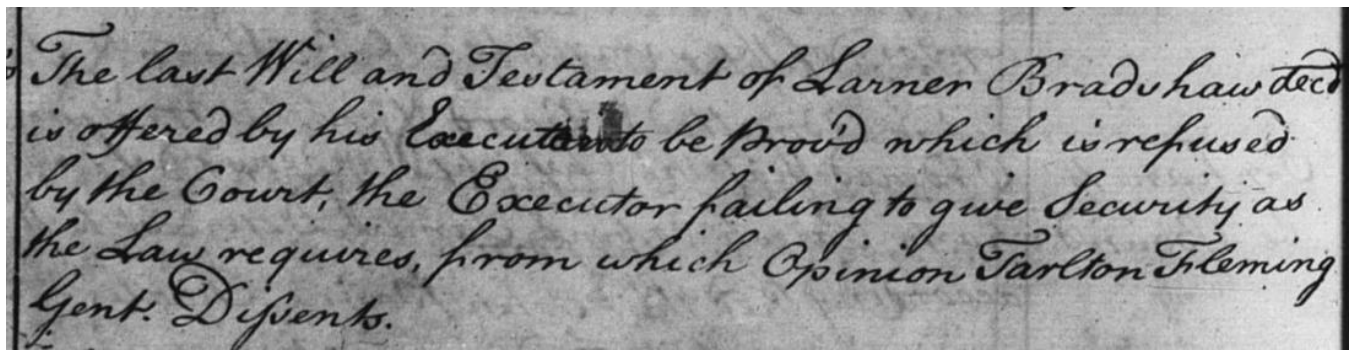 The last Will and Testament of Larner Bradshaw decd
is offered by his Executor to be prov'd which is refused
by the Court, the Executor failing to give Security as
the Law requires, from which Opinion Tarlton Fleming
Gent. Dissents.